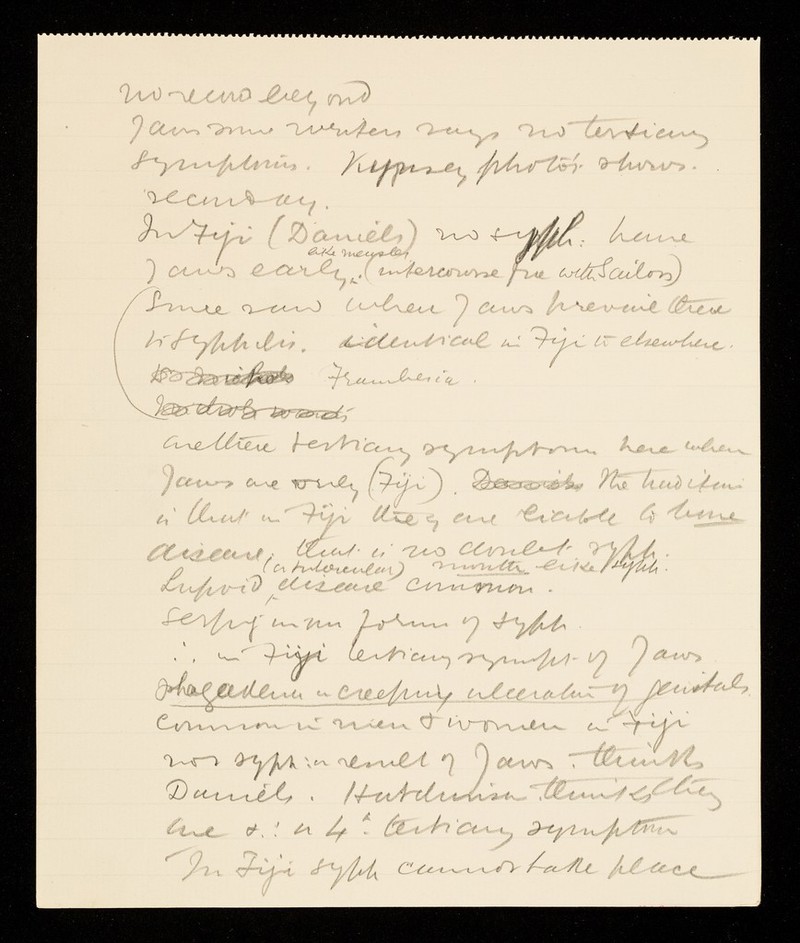 no record beyond
Yaws some writers says no tertiary
symptoms. photo's shows.
secondary.
In Fiji (Daniels) no syph: have
like measles
Yaws early. (intercourse free with Sailors)
Since when Yaws prevail there
is syphilis. identical in Fiji to elsewhere.
Frambesia.
are there tertiary symptoms here when
Yaws are only (Fiji). The tradition
is that in Fiji they are liable to bone
disease, that is no doubt syph.
(or tubercular) mouth like syph.
Lupoid disease common.
form of syph.
∴ in Fiji tertiary sympt. of Yaws
phagedena or creeping ulceration of genitals
common in men & women in Fiji
not syph: a result of Yaws. thinks
Daniels. Hutchinson thinks they
are tertiary symptom
In Fiji syph cannot take place